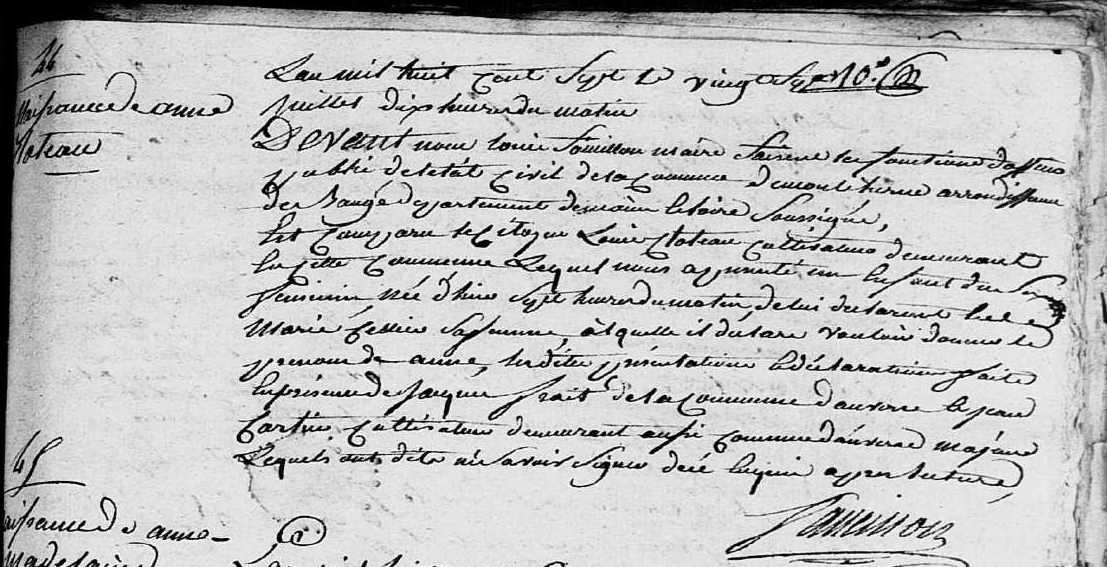 44
Naissance de anne
Cloteau
L'an mil huit cent Sept le vingt Sept
juillet dix heures du matin
Devant nous Louis maire faisant les fonctions d'officier
public de l'état Civil de la Commune de monthierne arrondissement
de Baugé departement de maine et loire Soussigné,
Est Comparu le Citoyen Louis Cloteau Cultivateur demeurant
en cette Commune Lequel nous a presenté un Enfant du Sexe
feminin née d'hier Sept heures du matin, de lui declarant et de
Marie Sa femme, a laquelle il declare vouloir donner le
prenom de anne, lesdites présentation et déclaration faites
En présence de Jacques frait de la Commune d'auverse et jean
Cultivateur demeurant aussi Commune d'auverse majeurs
Lesquels ont dit ne Savoir Signer de ce Enquis apres lecture,
45
naissance de anne-
madelaine